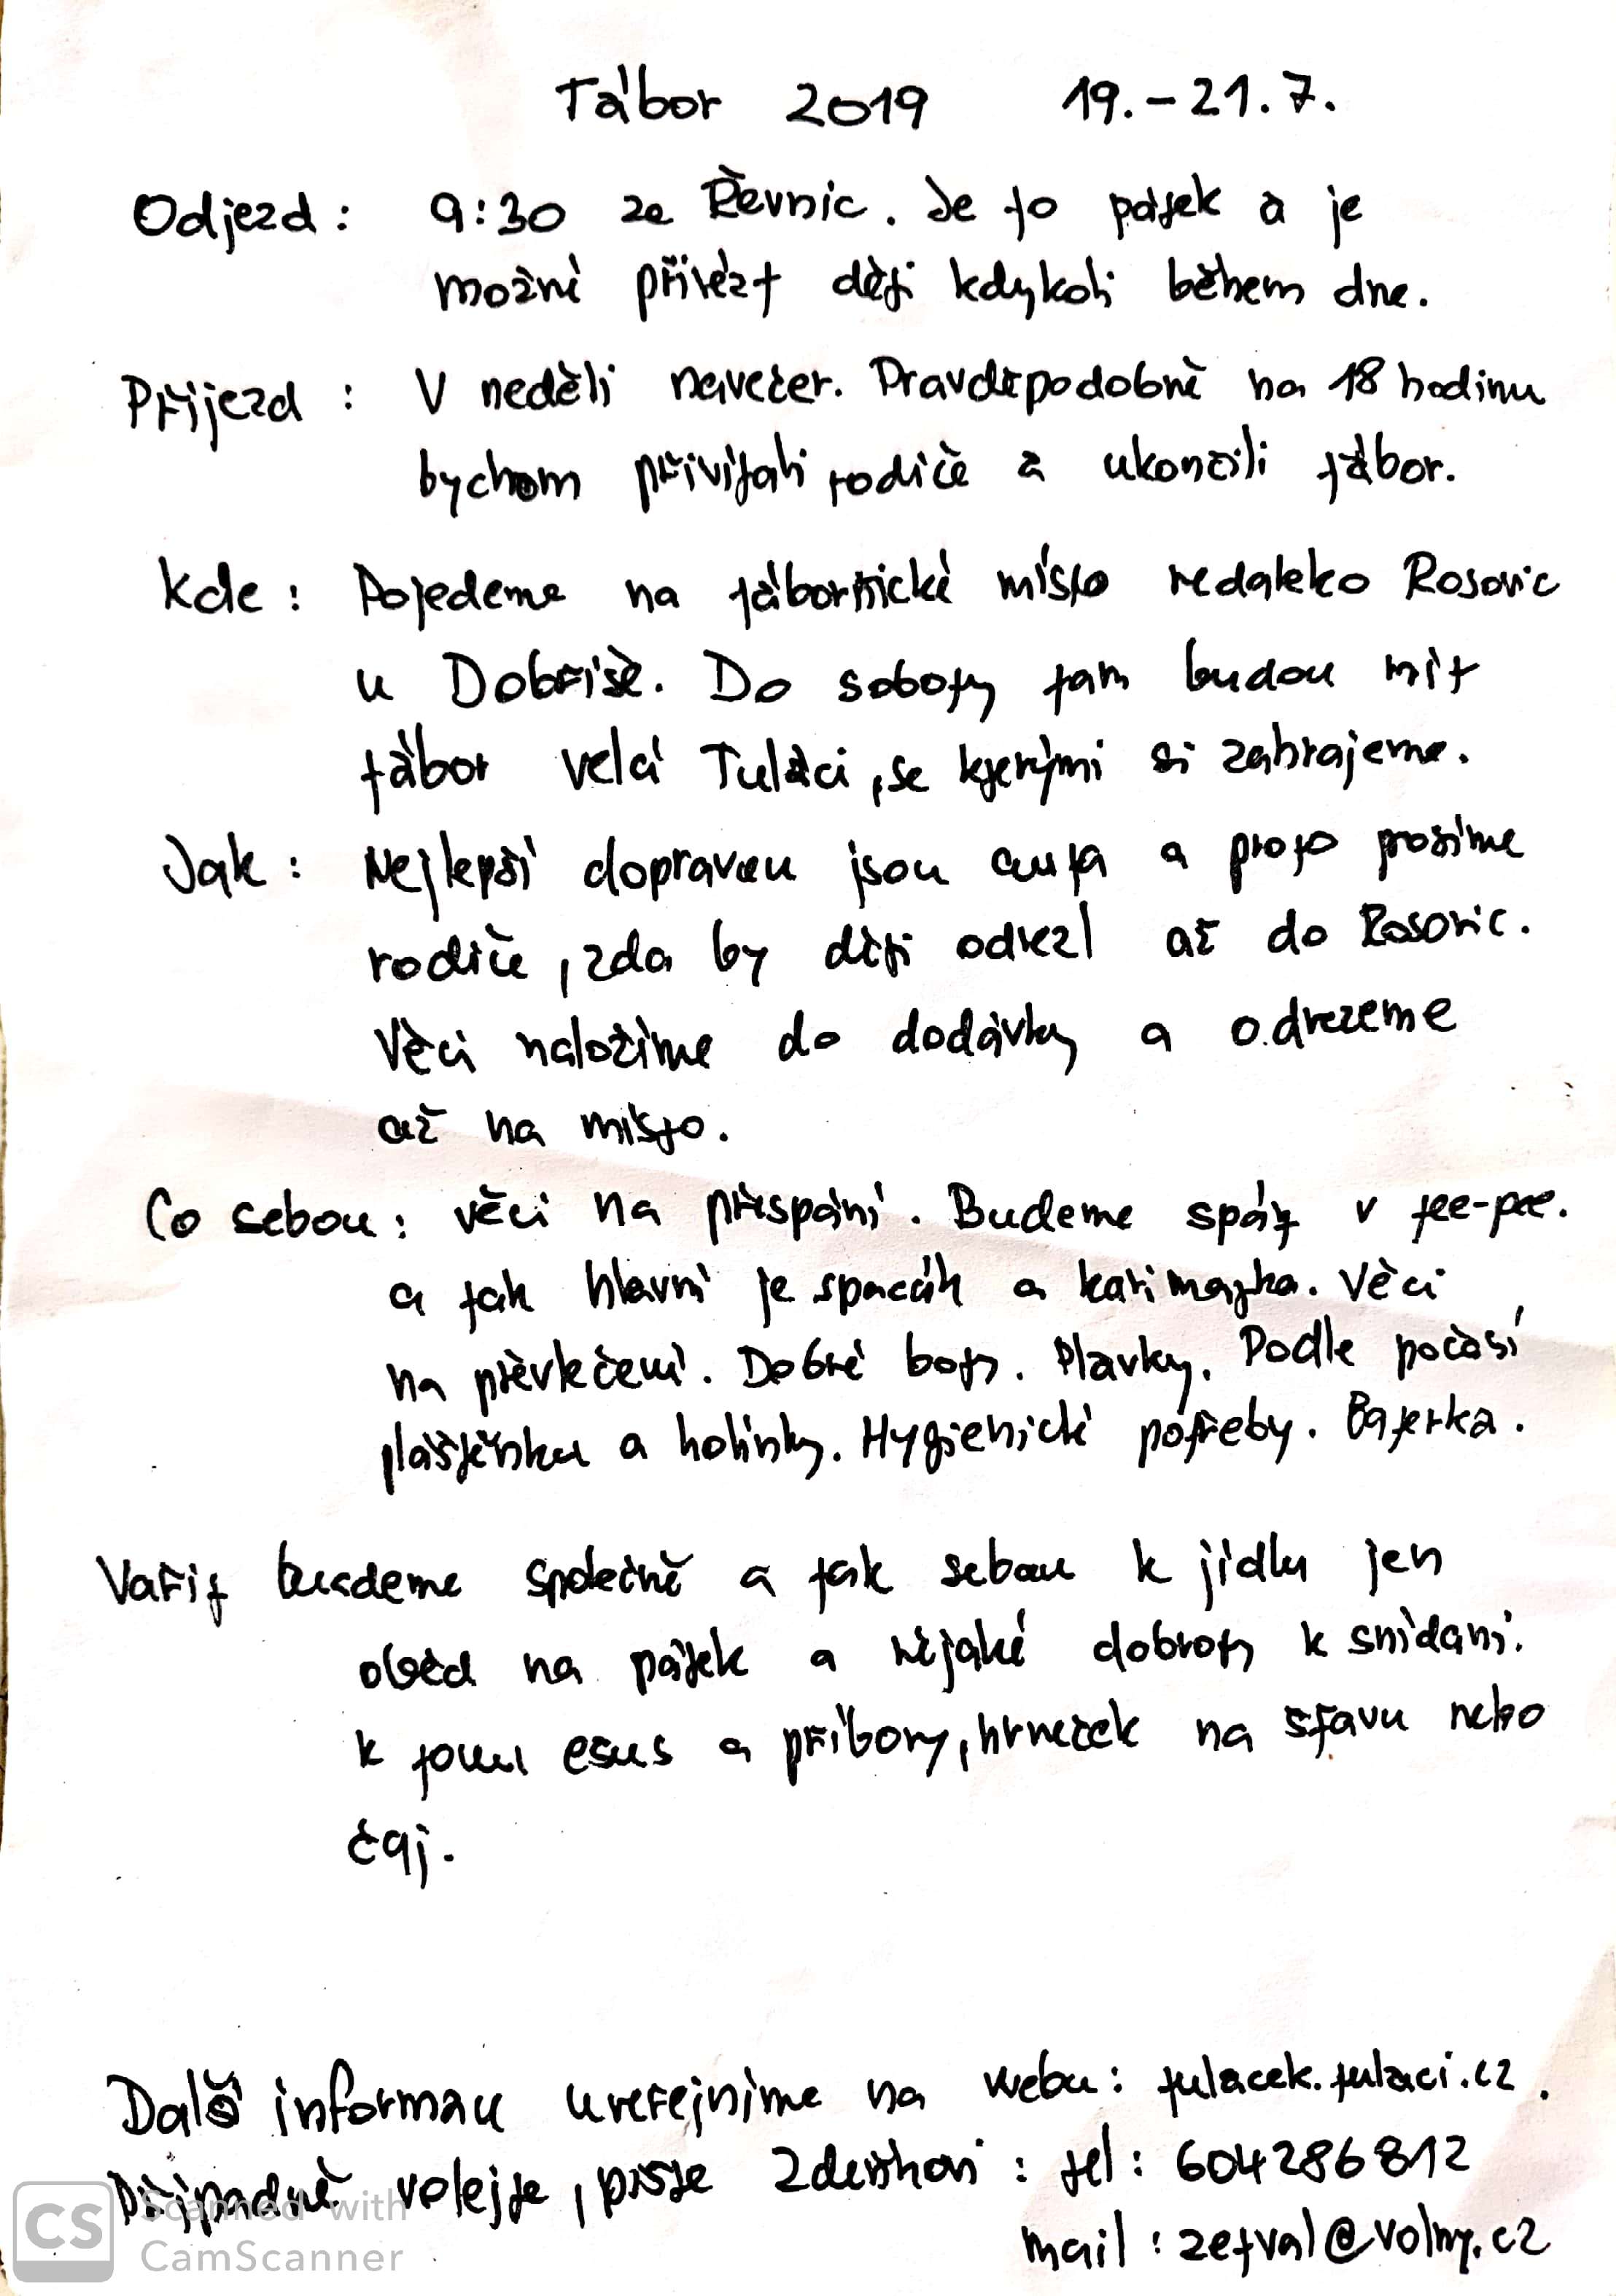 Tábor 2019 19.-21.7.
Odjezd: 9:30 ze Řevnic. Je to pátek a je
možné přivézt děti kdykoli během dne.
Příjezd: V neděli navečer. Pravděpodobně na 18 hodinu
bychom přivítali rodiče a ukončili tábor.
Kde: Pojedeme na tábornické místo nedaleko Rosovic
u Dobříše. Do soboty tam budou mít
tábor velcí Tuláci, se kterými si zahrajeme.
Jak: Nejlepší dopravou jsou auta a proto prosíme
rodiče, zda by děti odvezl až do Rosovic.
Věci naložíme do dodávky a odvezeme
až na místo.
Co sebou: věci na přespání. Budeme spát v tee-pee.
a tak hlavní je spacák a karimatka. Věci
na převlečení. Dobré boty. Plavky. Podle počasí
pláštěnku a holínky. Hygienické potřeby. Baterka.
Vařit budeme společně a tak sebou k jídlu jen
oběd na pátek a nějaké dobroty k snídani.
k tomu esus a příbory, hrneček na šťavu nebo
čaj.
Další informace uveřejníme na webu: tulacek.tulaci.cz.
Případně volejte, pište Zdeňkovi: tel: 604286812
mail: zetval@volny.cz
CS Scanned with
CamScanner